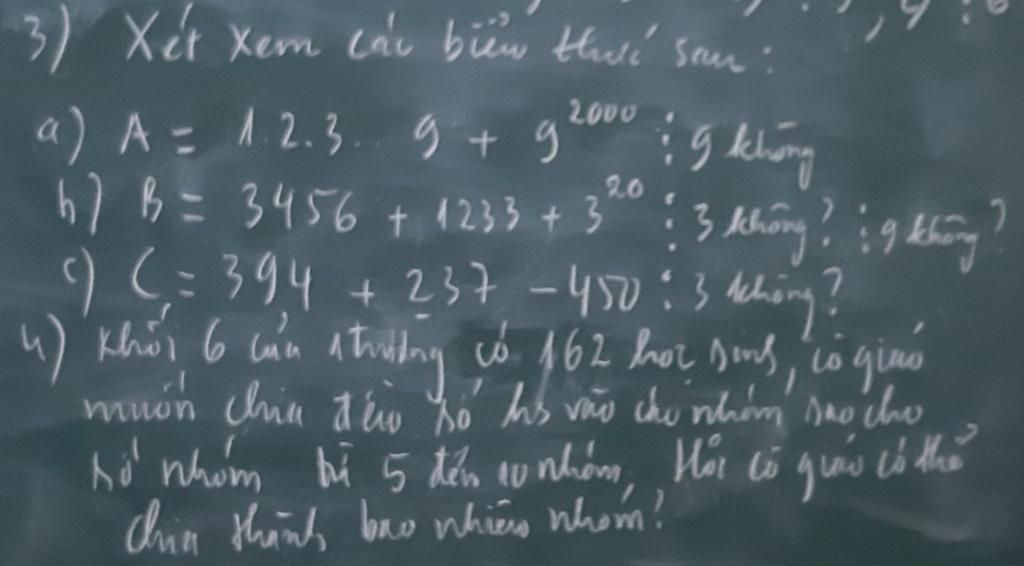 3) Xét xem các biểu thức sau:
a) A = 1.2.3... 9 + 9^2000 ⋮ 9 không
b) B = 3456 + 1233 + 3^20 ⋮ 3 không? ⋮ 9 không?
c) C = 394 + 237 - 450 ⋮ 3 không?
4) Khối 6 của 1 trường có 162 học sinh, cô giáo
muốn chia đều số hs vào các nhóm sao cho
số nhóm từ 5 đến 10 nhóm, Hỏi cô giáo có thể
chia thành bao nhiêu nhóm?